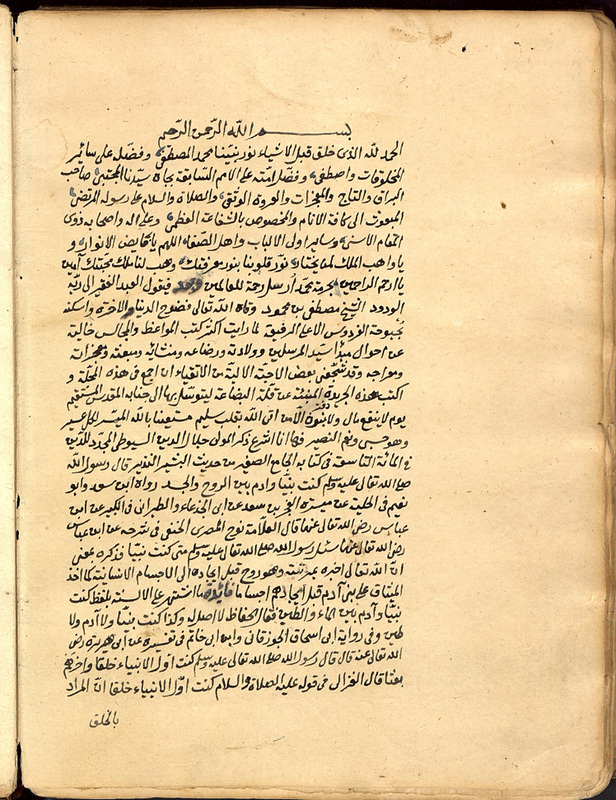 بسم الله الرحمن الرحيم
الحمد لله الذي خلق قبل الاشياء نور نبينا محمد المصطفى وفضله على سائر
المخلوقات واصطفى وفضل امته على الامم السابقة بجاه سيدنا المجتبى صاحب
البراق والتاج والمعجزات والعروة الوثقى والصلاة والسلام على رسوله المرتضى
المبعوث الى كافة الانام والمخصوص بالشفاعة العظمى وعلى اله واصحابه ذوى
المقام الاسنى وساير اولى الالباب واهل الصفا اللهم يا فايض الانوار و
يا واهب الملك لمن يختار نور قلوبنا بنور معرفتك وهب لنا ملك محبتك آمين
يا ارحم الراحمين بحرمة محمد ارسل رحمة للعالمين وبعد فيقول العبد الفقير الى ربه
الودود الشيخ مصطفى بن محمود وقاه الله تعالى فضوح الدنيا والاخرة واسكنه
بحبوحة الفردوس الاعلى الرفيق لما رايت اكثر كتب المواعظ والمجالس خالية
عن احوال مبدأ سيد المرسلين وولادته ورضاعه ومنشائه ومبعثه ومعجزاته
ومعراجه وقد شجعنى بعض الاحبة الالبة من الاتقياء ان اجمع فى هذه المجلة و
اكتب هذه الجريدة المنبئة عن قلة البضاعة ليتوسل بها الى جنابه المقدس المستقيم
يوم لا ينفع مال ولا بنون الا من اتى الله بقلب سليم مستعينا بالله الميسر لكل عسير
وهو حسبى ونعم النصير فها انا اشرع ذكر المولى جلال الدين السيوطى المجدد للدين
فى المائة التاسعة فى كتابه الجامع الصغير من حديث البشير النذير قال رسول الله
صلى الله تعالى عليه وسلم كنت نبيا وادم بين الروح والجسد رواه ابن سعد وابو
نعيم فى الحلية عن ميسرة الفجر بن سعد عن ابى الجدعاء والطبرانى فى الكبير عن ابن
عباس رضى الله تعالى عنهما قال العلامة نوح المصرى الحنفى فى شرحه عن ابن عباس
رضى الله تعالى عنهما سئل رسول الله صلى الله تعالى عليه وسلم متى كنت نبيا فذكره بمعنى
ان الله تعالى اخبره بمرتبته وهو روح قبل ايجاده الى الاجسام الانسانية كما اخذ
الميثاق على بنى آدم قبل ايجادهم اجساما فائدة ما اشتهر على الالسنة بلفظ كنت
نبيا وآدم بين الماء والطين فقال الحفاظ لا اصل له وكذا كنت نبيا ولا آدم ولا
طين وفى رواية ابى اسحاق الجوزقان وابن ابى حاتم فى تفسيره عن ابى هريرة رضى
الله تعالى عنه قال قال رسول الله صلى الله تعالى عليه وسلم كنت اول الانبياء خلقا واخرهم
بعثا قال الغزالى فى قوله عليه الصلاة والسلام كنت اول الانبياء خلقا ان المراد
بالخلق